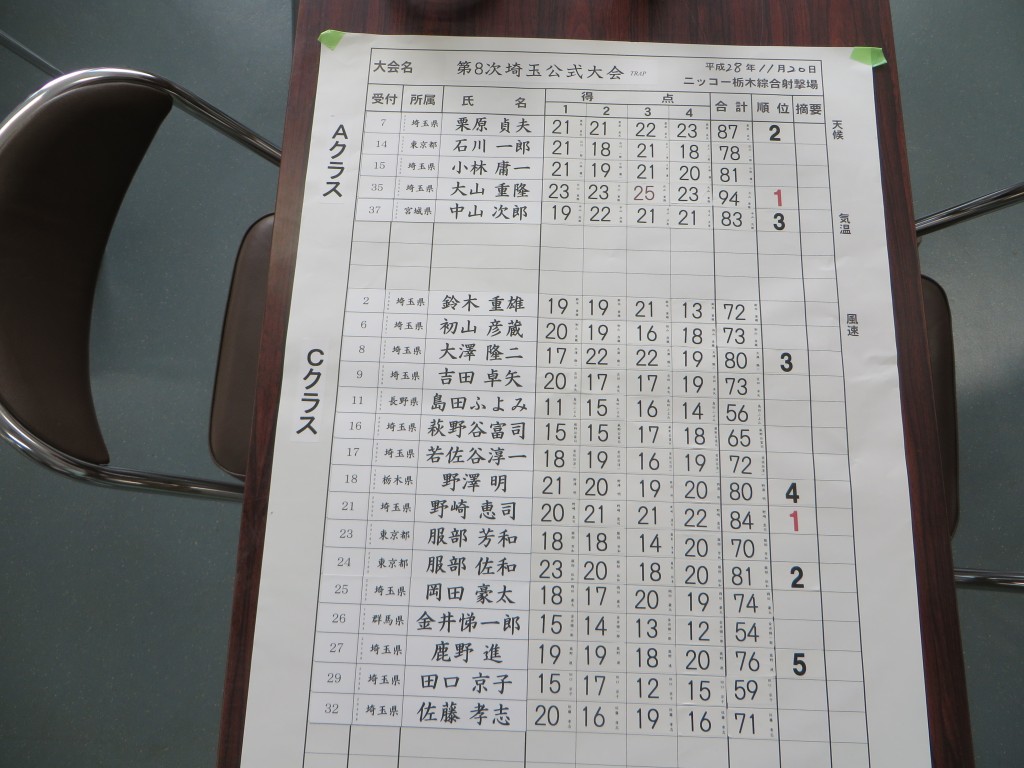 大会名 第8次埼玉公式大会 TRAP 平成28年11月20日
ニッコー栃木綜合射撃場
受付 所属 氏 名 得 点 合計 順位 摘要
1 2 3 4
天候
気温
風速
Aクラス
7 埼玉県 栗原 貞夫 21 21 22 23 87 2
14 東京都 石川 一郎 21 18 21 18 78
15 埼玉県 小林 庸一 21 19 21 20 81
35 埼玉県 大山 重隆 23 23 25 23 94 1
37 宮城県 中山 次郎 19 22 21 21 83 3
Cクラス
2 埼玉県 鈴木 重雄 19 19 21 13 72
6 埼玉県 初山 彦蔵 20 19 16 18 73
8 埼玉県 大澤 隆二 17 22 22 19 80 3
9 埼玉県 吉田 卓矢 20 17 17 19 73
11 長野県 島田ふよみ 11 15 16 14 56
16 埼玉県 萩野谷富司 15 15 17 18 65
17 埼玉県 若佐谷淳一 18 19 16 19 72
18 栃木県 野澤 明 21 20 19 20 80 4
21 埼玉県 野崎 恵司 20 21 21 22 84 1
23 東京都 服部 芳和 18 18 14 20 70
24 東京都 服部 佐和 23 20 18 20 81 2
25 埼玉県 岡田 豪太 18 17 20 19 74
26 群馬県 金井悌一郎 15 14 13 12 54
27 埼玉県 鹿野 進 19 19 18 20 76 5
29 埼玉県 田口 京子 15 17 12 15 59
32 埼玉県 佐藤 孝志 20 16 19 16 71